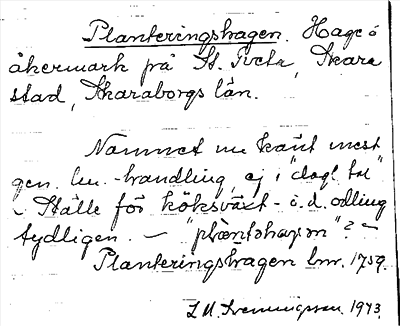 Planteringshagen. Hage o
åkermark på St. Tveta, Skara
stad, Skaraborgs län.
Namnet nu känt mest
gen. lm.-handling, ej i "dagl. tal"
- Ställe för köksväxt- o. d. odling
tydligen. - "plàntəhagən"? -
Planteringshagen lmr. 1759.
1943.